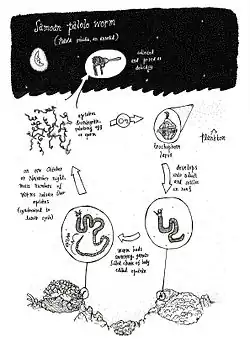 Samoan palolo worm
(Palola viridis, an annelid)
collected
and prized as
delicacy
epitokes
disintegrate,
releasing egg
or sperm
trochophore
larva
plankton
develops
into adult
and settles
on reef
worm buds
swimming, gamete
filled chain of body
called epitoke
on one October
or November night,
mass numbers of
worms release their
epitokes
(synchronized to
lunar cycle)